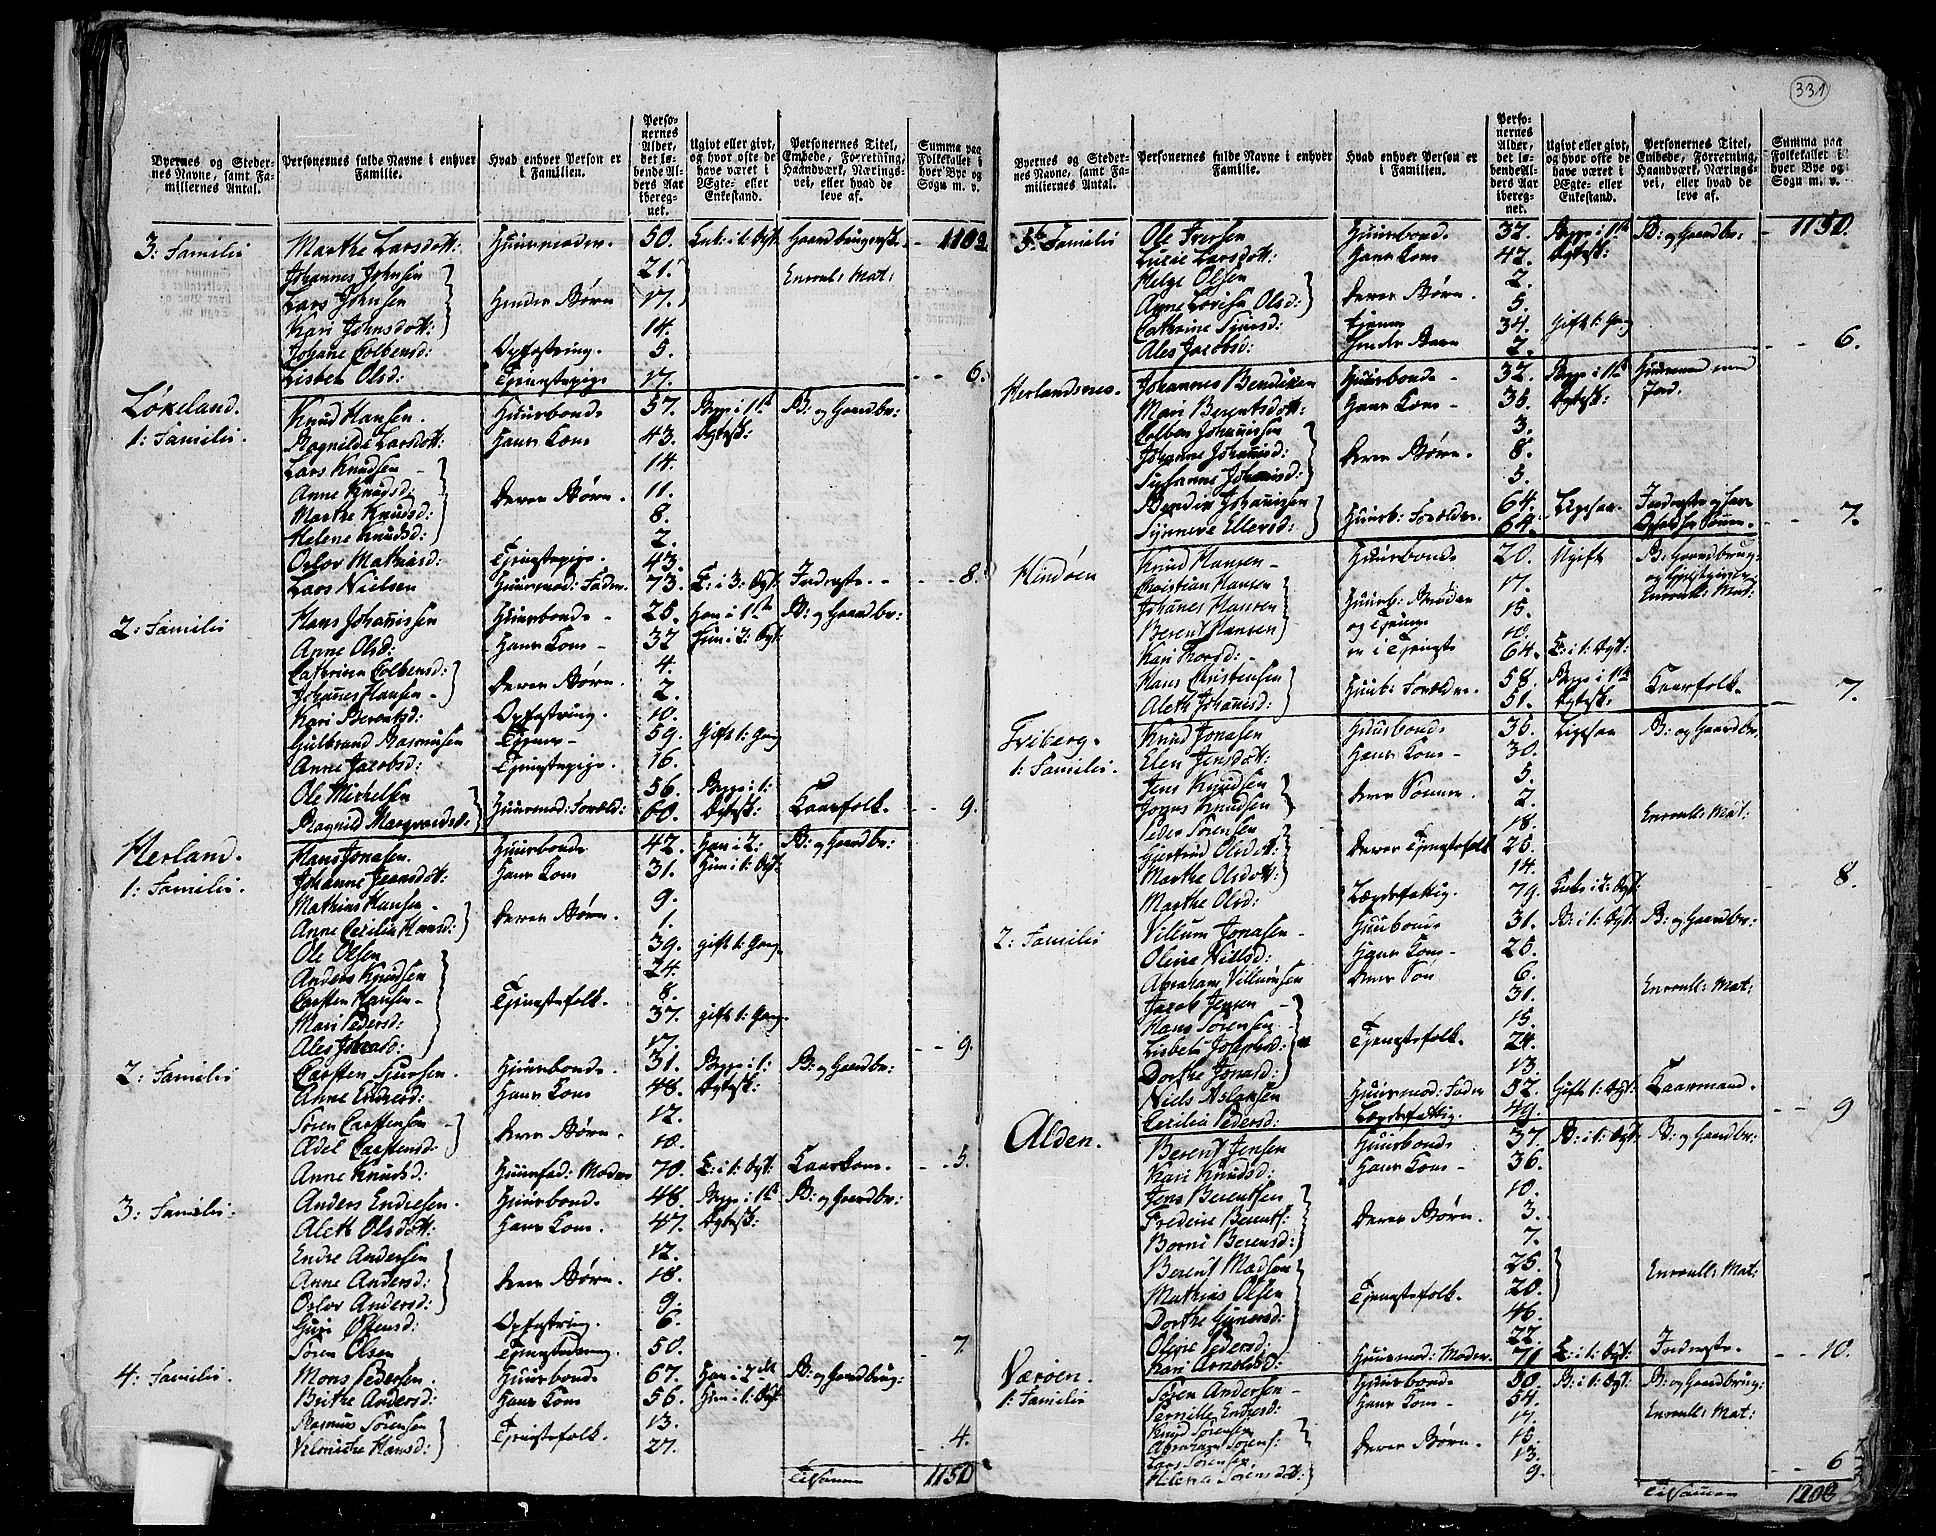 331
Byernes og Steder-
nes Navne, samt Fa-
miliernes Antal.
Personernes fulde Navne i enhver
Familie.
Hvad enhver Person er
i Familien.
Perso-
nernes
Alder,
det lø-
bende Al-
ders Aar
ibereg-
net.
Ugivt eller givt,
og hvor ofte de
have været i
Ægte- eller
Enkestand.
Personernes Titel,
Embede, Forretning,
Haandværk, Nærings-
vei, eller hvad de
leve af.
Summa paa
Folketallet i
hver Bye og
Sogn m. v.
3: Familie Marthe Larsdott: Huusmoder. 50. Enk: i 1: Ægt:
Johannes Johnsen 21. Enroul: Mat:
Lars Johnsen Hendes Børn 17.
Kari Johnsdott: 14.
Johane Colbensd: Opfostring. 5.
Lisbeth Olsd: Tjenstepige 17. 6.
Løkeland.
1: Familie. Knud Hansen. Huusbonde 57. Begge i 1ste B: og Gaardbr:
Ragnilde Larsdott: Hans Kone 43. Ægtesk:
Lars Knudsen 14.
Anne Knudsd: Deres Børn. 11.
Marthe Knudsd: 8.
Helene Knudsd: 2.
Oslov Mathiasd: Tjenstepige. 43.
Lars Nielsen Huusmod: Fader. 73. E: i 3: Ægt: 8.
2: Familie Hans Johannissen Huusbonde 25. Han i 1ste B: og Gaardbr:
Anne Olsd: Hans Kone 32 Hun i 2: Ægt:
Cathrine Colbensd: Deres Børn. 4.
Johannes Hansen 2.
Kari Berentsd: Opfostring. 10.
Gulbrand Rasmusen Tjener 59. Gift 1: Gang
Anne Jacobsd: Tjenstepige. 16.
Ole Mickelsen Huusmod: Foræld: 56. Begge i 1:
Ragnild Margvardsd: 60. Ægtesk: Kaarfolk. 9.
Herland.
1: Familie. Hans Jonasen. Huusbonde 42. Han i 2: B: og Gaardbr:
Johanne Jeansdott: Hans Kone 31. Hun i 1: Ægt:
Mathias Hansen Deres Børn. 9.
Anne Cecilia Hansd: 1.
Ole Olsen 39. gift 1: Gang
Anders Knudsen 24.
Carsten Hansen Tjenstefolk. 8.
Mari Pedersd: 37. gift 1: Gang.
Ales Johnsd: 17. 9.
2: Familie Carsten Siursen. Huusbonde. 31. Begge i 1: B: og Gaardbr:
Anne Endresd: Hans Kone 48. Ægtesk:
Søren Carstensen Deres Børn. 12.
Adel Carstensd: 10.
Anne Knudsd: Huusfad: Moder 70. E: i 1: Ægt: Kaarkone. 5.
3: Familie. Anders Endresen. Huusbonde 48. Begge i 1ste B: og Gaardbr:
Alett Olsdott: Hans Kone. 47. Ægtesk:
Endre Andersen 12.
Anne Andersd: Deres Børn. 18.
Oslov Andersd: 9.
Guri Ostensd: Opfostring. 6.
Søren Olsen 50. 7.
4: Familie. Mons Pedersen. Huusbonde 67. Han i 2det B: og Gaardbrug:
Brithe Andersd: Hans Kone 56. Hun i 1: Ægt:
Rasmus Sørensen Tjenstefolk. 13.
Velentiche Hansd: 27. 4.
Tilsamen 1150
Byernes og Steder-
nes Navne, samt Fa-
miliernes Antal.
Personernes fulde Navne i enhver
Familie.
Hvad enhver Person er
i Familien.
Perso-
nernes
Alder,
det lø-
bende Al-
ders Aar
ibereg-
net.
Ugivt eller givt,
og hvor ofte de
have været i
Ægte- eller
Enkestand.
Personernes Titel,
Embede, Forretning,
Haandværk, Nærings-
vei, eller hvad de
leve af.
Summa paa
Folketallet i
hver Bye og
Sogn m. v.
5te Familie Ole Iversen Huusbond. 32. Begge i 1ste B: og Gaardbr: 1150.
Lucie Larsdott: Hans Kone 42. Ægtesk:
Helge Olsen Deres Børn. 2.
Anne Lovisa Olsd: 5.
Cathrine Siursd: tjener 34. Gift 1: Gang
Ales Jacobsd: Hendes Barn 2. 6.
Herlandsnes. Johannes Bendixen Huusbonde 32. Begge i 1ste Huusmand med
Mari Berentsdott: Hans Kone 35. Ægtesk: Jord.
Colben Johanissen 3.
Johanne Johanisd: Deres Børn. 8.
Susanne Johanisd: 5.
Bendix Johanisen Huusb: Forældre. 64. Ligesaa.
Synneve Ellersd: 64. 7.
Hindøen Knud Hansen Huusbonde 20. Ugift B: Gaardbrug:
Christian Hansen 17. og Giestgiver
Johanes Hansen Huusb: Brødre 15. Enroull: Mat:
Berent Hansen og tjener 10.
Kari Thorsd: er i Tjeneste 64. E: i 1: Ægt:
Hans Christensen Huusb: Forældre. 58. Begge i 1ste Kaarfolk.
Aleth Johanisd: 51. Ægtesk: 7.
Triberg.
1: Familie. Knud Jonasen Huusbonde 35. Ligesaa B: og Gaardbr.
Elen Jensdott: Hans Kone 30.
Jens Knudsen Deres Sønner. 5.
Jonas Knudsen 2. Enroull: Mat:
Peder Sørensen 18.
Giertrud Olsdott: Deres Tjenstefolk 26.
Marthe Olsdott: 14.
Marthe Olsd: Lægdsfattig. 79. Enke i 2: Ægt: 8.
2: Familie Villum Jonasen Huusbonde 31. B: i 1: Ægt: B: og Gaardbr:
Oline Nielsd: Hans Kone 25.
Abraham Villumsen Deres Søn 6. Enroull: Mat:
Jacob Jensen 31.
Hans Sørensen Tjenstefolk. 15.
Lisbeth Josephsd: 24.
Dorthe Jonasd: 13.
Niels Aslansen Huusmod: Fader 52. Gift 1: Ægt: Kaarmand.
Cecilia Pedersd: Lægdsfattig. 49. 9
Alden. Berent Jensen Huusbonde 37. B: i 1: Ægt: B: og Gaardbr:
Kari Knudsd: Hans Kone 36.
Jens Berentsen 10.
Fredrie Berents: Deres Børn. 3.
Borni Berensd: 7.
Berent Madsen 25. Enroull: Mat:
Mathias Olsen Tjenstefolk. 20.
Dorthe Gunersd: 46.
Oline Pedersd: 22.
Kari Arnolsd: Huusmod: Moder. 71. E: i 1: Ægt: 10.
Værøen.
1: Familie Søren Andersen Huusbonde 50. B: i 1: Ægt: B: og Gaardbrug:
Pernille Endresd: Hans Kone 54. Enroull: Mat:
Knud Sørensen 17.
Abraham Sørens: Deres Børn. 15.
Lars Sørensen 13.
Helena Sørensdott: 9. 6
Tilsamen 1203